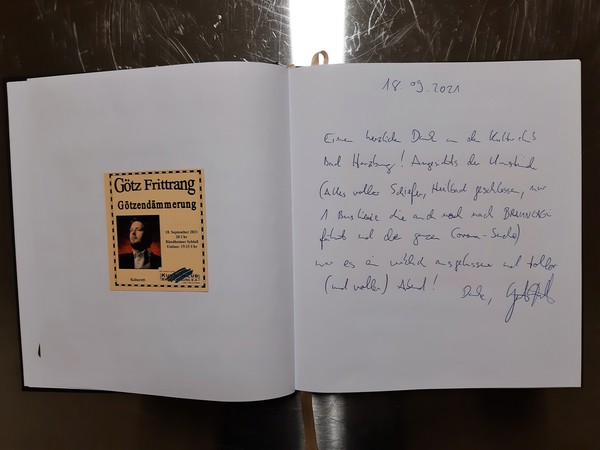 Götz Frittrang
Götzendämmerung
18. September 2021
20 Uhr
Bündheimer Schloß
Einlass: 19.15 Uhr
18.09.2021
Einen herzlichen Dank an den Kulturclub
Bad Harzburg! Angesichts der Umstände
(Alles voller Schiefer, geschlossen, nur
1 Buslinie die auch noch nach BRAUNLAGE
fährt und der ganzen Corona-Suche)
war es ein wirklich ausgelassener und toller
(und voller) Abend!
Danke,